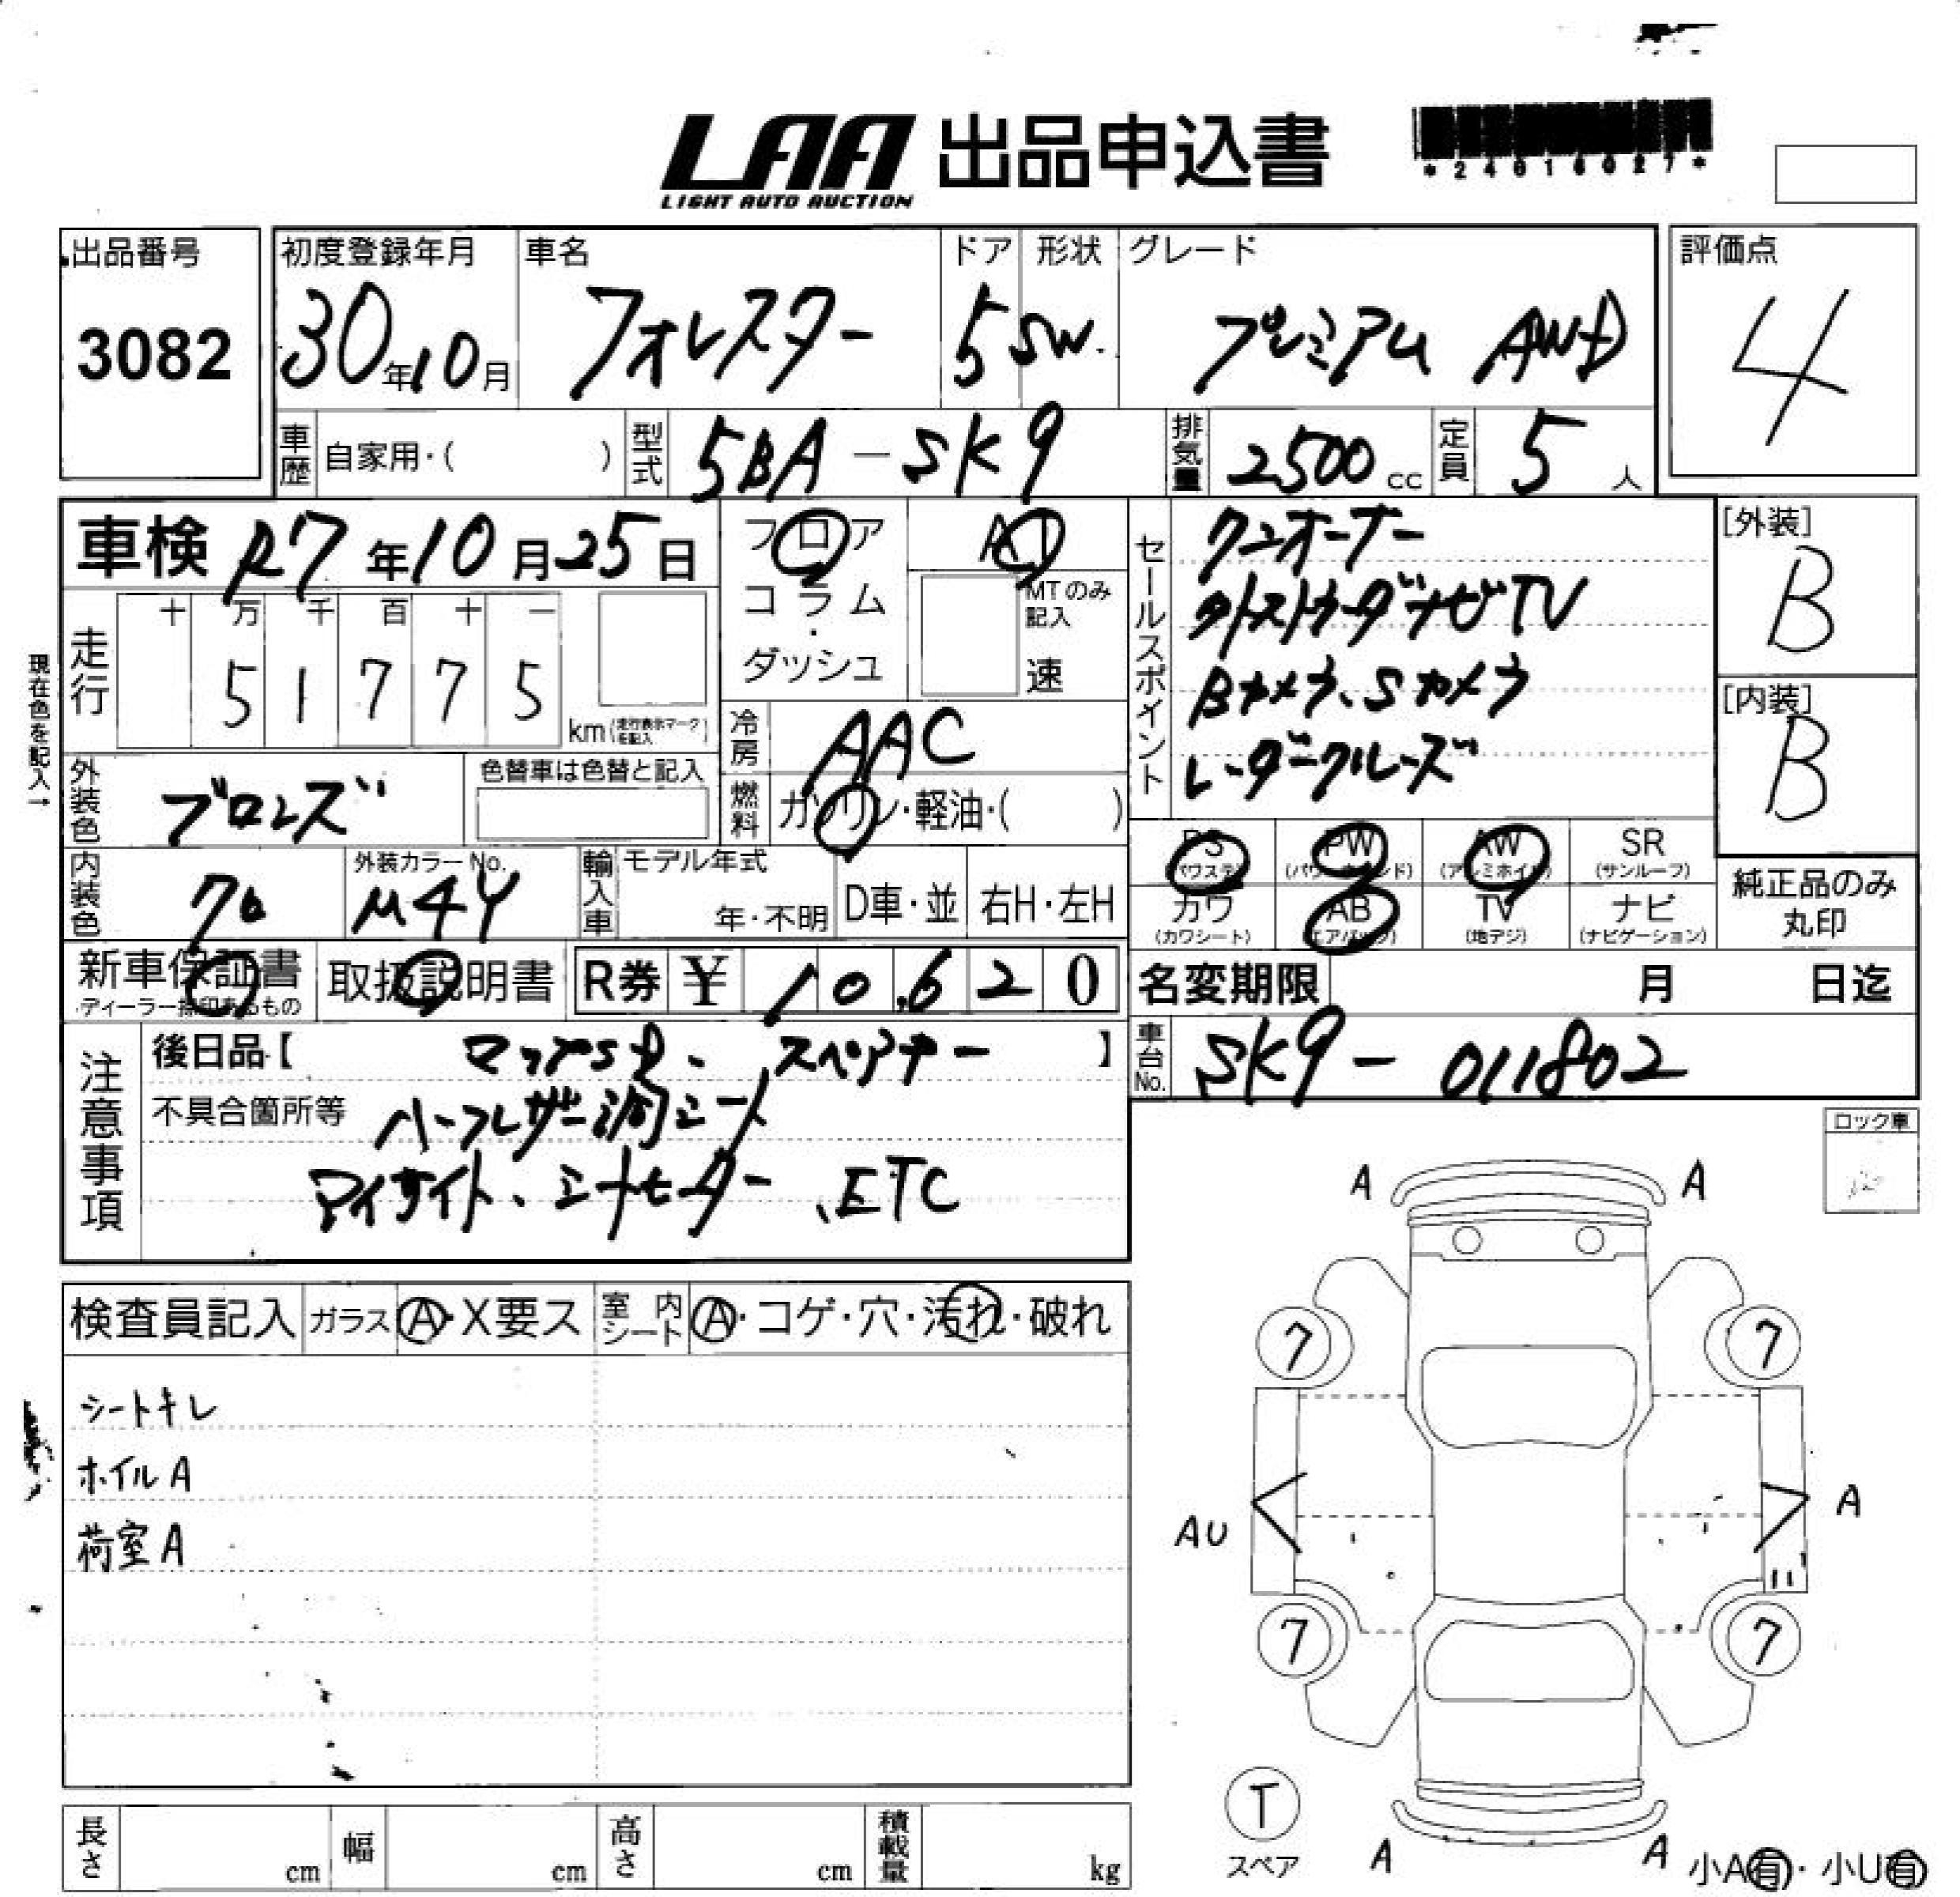 LAA 出品申込書
LIGHT AUTO AUCTION
*24016027*
出品番号
3082
初度登録年月
30年10月
車名
フォレスター
ドア
5
形状
SW.
グレード
プレミアム AWD
評価点
4
車歴 自家用・( )
型式 5BA-SK9
排気量 2500cc
定員 5人
車検 R7年10月25日
フロア
コラム
・
ダッシュ
AT
MTのみ記入
速
セールスポイント
ワンオーナー
ナビTV
Bカメラ、Sカメラ
レーダークルーズ
[外装]
B
[内装]
B
現在色を記入→
走行
十 万 千 百 十 一
5 1 7 7 5
km(走行表示マークを記入)
冷房 AAC
燃料 ガソリン・軽油・( )
外装色 ブロンズ
色替車は色替と記入
内装色
外装カラーNo.
M4Y
輸入車
モデル年式
年・不明
D車・並
右H・左H
PS (パワステ)
PW (パワーウインド)
AW (アルミホイル)
SR (サンルーフ)
カワ (カワシート)
AB (エアバッグ)
TV (地デジ)
ナビ (ナビゲーション)
純正品のみ
丸印
新車保証書
ディーラー捺印あるもの
取扱説明書
R券 ¥ 10,620
名変期限 月 日迄
車台No. SK9-011802
注意事項
後日品【 スペアキー 】
不具合箇所等 ハーフレザー調シート
アイサイト、シートヒーター、ETC
ロック車
検査員記入
ガラス A・X要ス
室内シート A・コゲ・穴・汚れ・破れ
シートキレ
ホイルA
荷室A
A A
7 7
AU A
7 7
T
スペア
A A
小A有・小U有
長さ cm
幅 cm
高さ cm
積載量 kg